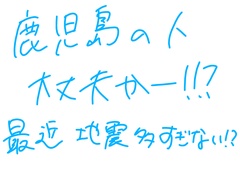 鹿児島の人
大丈夫かー!!?
最近 地震多すぎない!?